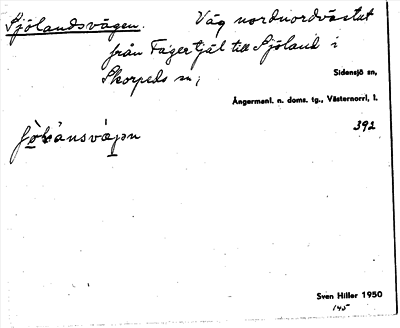 Sjölandsvägen. Väg nordnordvästut
från Fagertjäl till Sjöland i
Skorpeds sn,
Sidensjö sn,
Ångermanl. n. doms. tg., Västernorrl. l.
392
Sven Hiller 1950
145